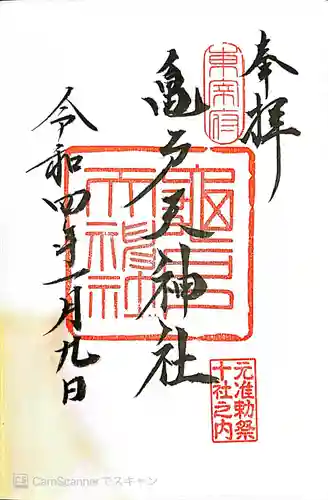 奉拝
東宰府
亀戸天神社
亀戸天神社
元准勅祭
十社之内
令和四年一月九日
CS CamScannerでスキャン